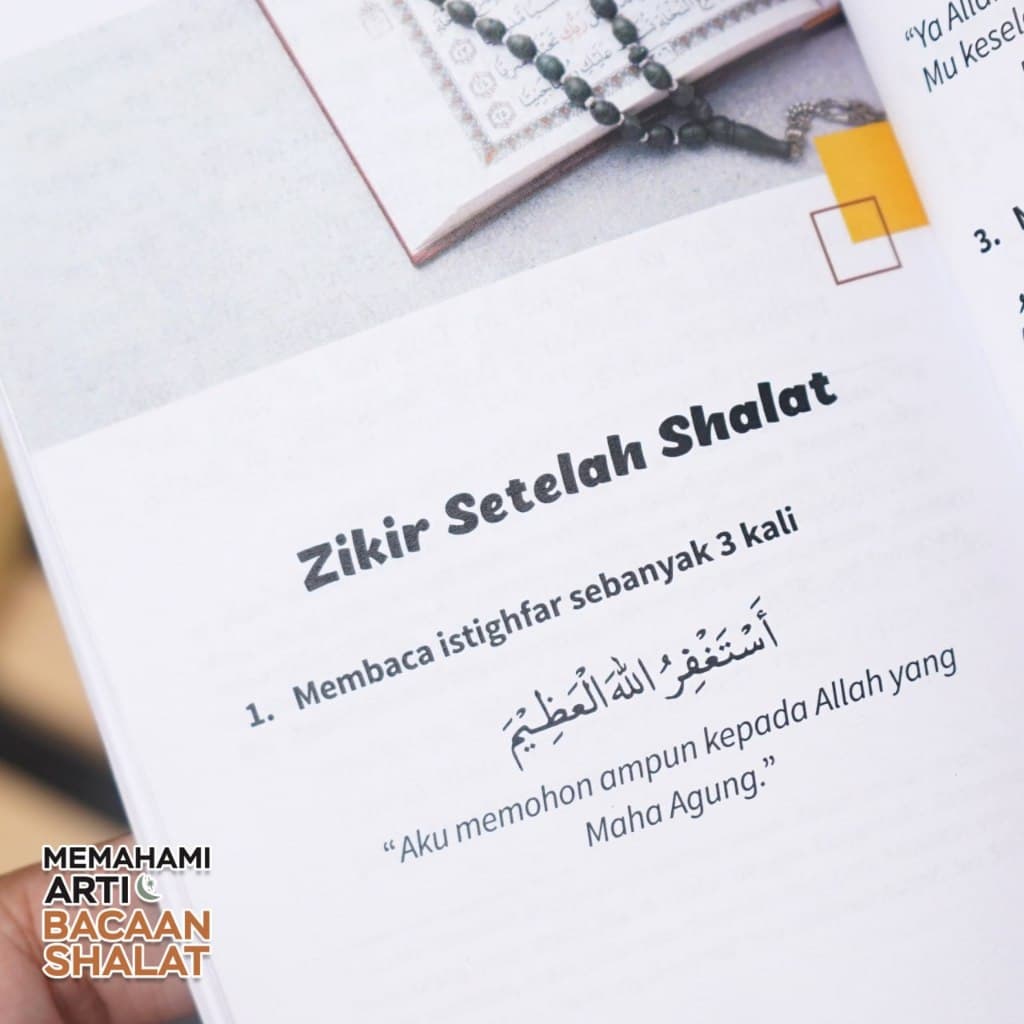 Zikir Setelah Shalat
1. Membaca istighfar sebanyak 3 kali
أَسْتَغْفِرُ اللهَ الْعَظِيْمَ
“Aku memohon ampun kepada Allah yang
Maha Agung.”
“Ya
Mu
3.
MEMAHAMI
ARTI
BACAAN
SHALAT